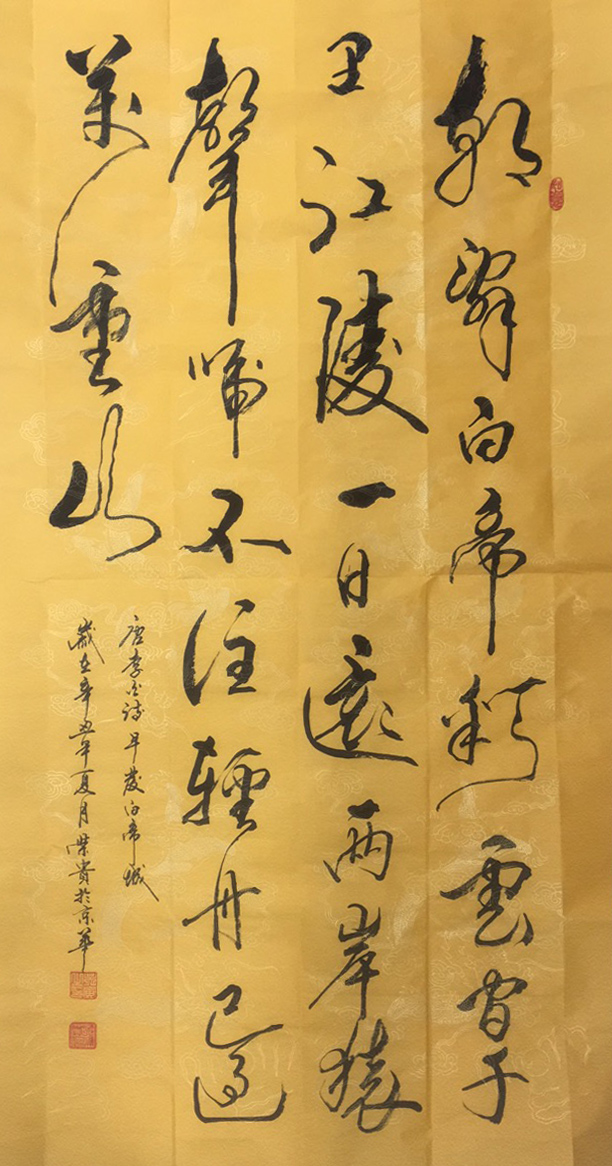 朝辭白帝彩雲間千
里江陵一日還兩岸猿
聲啼不住輕舟已過
萬重山
唐李白詩早發白帝城
歲在辛丑年夏月貴於京華